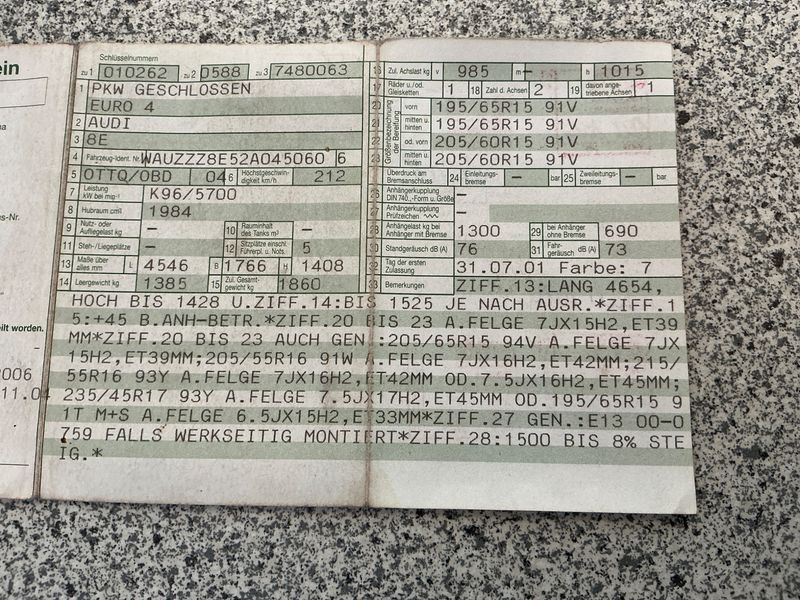 ein
Schlüsselnummern
zu 1 010262 zu 2 0588 zu 3 7480063
1 PKW GESCHLOSSEN
EURO 4
2 AUDI
3 8E
4 Fahrzeug-Ident. Nr. WAUZZZ8E52A045060 6
5 OTTO/OBD 04 6 Höchstgeschwindigkeit km/h 212
7 Leistung kW bei min⁻¹ K96/5700
8 Hubraum cm³ 1984
9 Nutz- oder Aufliegelast kg – 10 Rauminhalt des Tanks m³ –
11 Steh-/Liegeplätze – 12 Sitzplätze einschl. Führerpl. u. Nots. 5
13 Maße über alles mm L 4546 B 1766 H 1408
14 Leergewicht kg 1385 15 Zul. Gesamtgewicht kg 1860
16 Zul. Achslast kg v 985 m – h 1015
17 Räder u./od. Gleisketten 1 18 Zahl d. Achsen 2 19 davon angetriebene Achsen 1
Größenbezeichnung der Bereifung
20 vorn 195/65R15 91V
21 mitten u. hinten 195/65R15 91V
22 od. vorn 205/60R15 91V
23 mitten u. hinten 205/60R15 91V
Überdruck am Bremsanschluss 24 Einleitungsbremse – bar 25 Zweileitungsbremse – bar
26 Anhängerkupplung DIN 740.,-Form u. Größe –
27 Anhängerkupplung Prüfzeichen –
28 Anhängelast kg bei Anhänger mit Bremse 1300 29 bei Anhänger ohne Bremse 690
30 Standgeräusch dB (A) 76 31 Fahrgeräusch dB (A) 73
32 Tag der ersten Zulassung 31.07.01 Farbe: 7
33 Bemerkungen ZIFF.13:LANG 4654,
HOCH BIS 1428 U.ZIFF.14:BIS 1525 JE NACH AUSR.*ZIFF.1
5:+45 B.ANH-BETR.*ZIFF.20 BIS 23 A.FELGE 7JX15H2,ET39
MM*ZIFF.20 BIS 23 AUCH GEN.:205/65R15 94V A.FELGE 7JX
15H2,ET39MM;205/55R16 91W A.FELGE 7JX16H2,ET42MM;215/
55R16 93Y A.FELGE 7JX16H2,ET42MM OD.7.5JX16H2,ET45MM;
235/45R17 93Y A.FELGE 7.5JX17H2,ET45MM OD.195/65R15 9
1T M+S A.FELGE 6.5JX15H2,ET33MM*ZIFF.27 GEN.:E13 00-0
759 FALLS WERKSEITIG MONTIERT*ZIFF.28:1500 BIS 8% STE
IG.*
s-Nr.
eilt worden.
2006
11.04